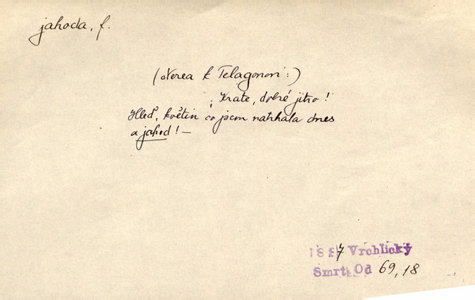 jahoda, f.
(Nerea k Telagonovi:)
Brate, dobré jitro!
Hleď, květin co jsem natrhala dnes
a jahod! —
Vrchlický
Smrt Od 69, 18